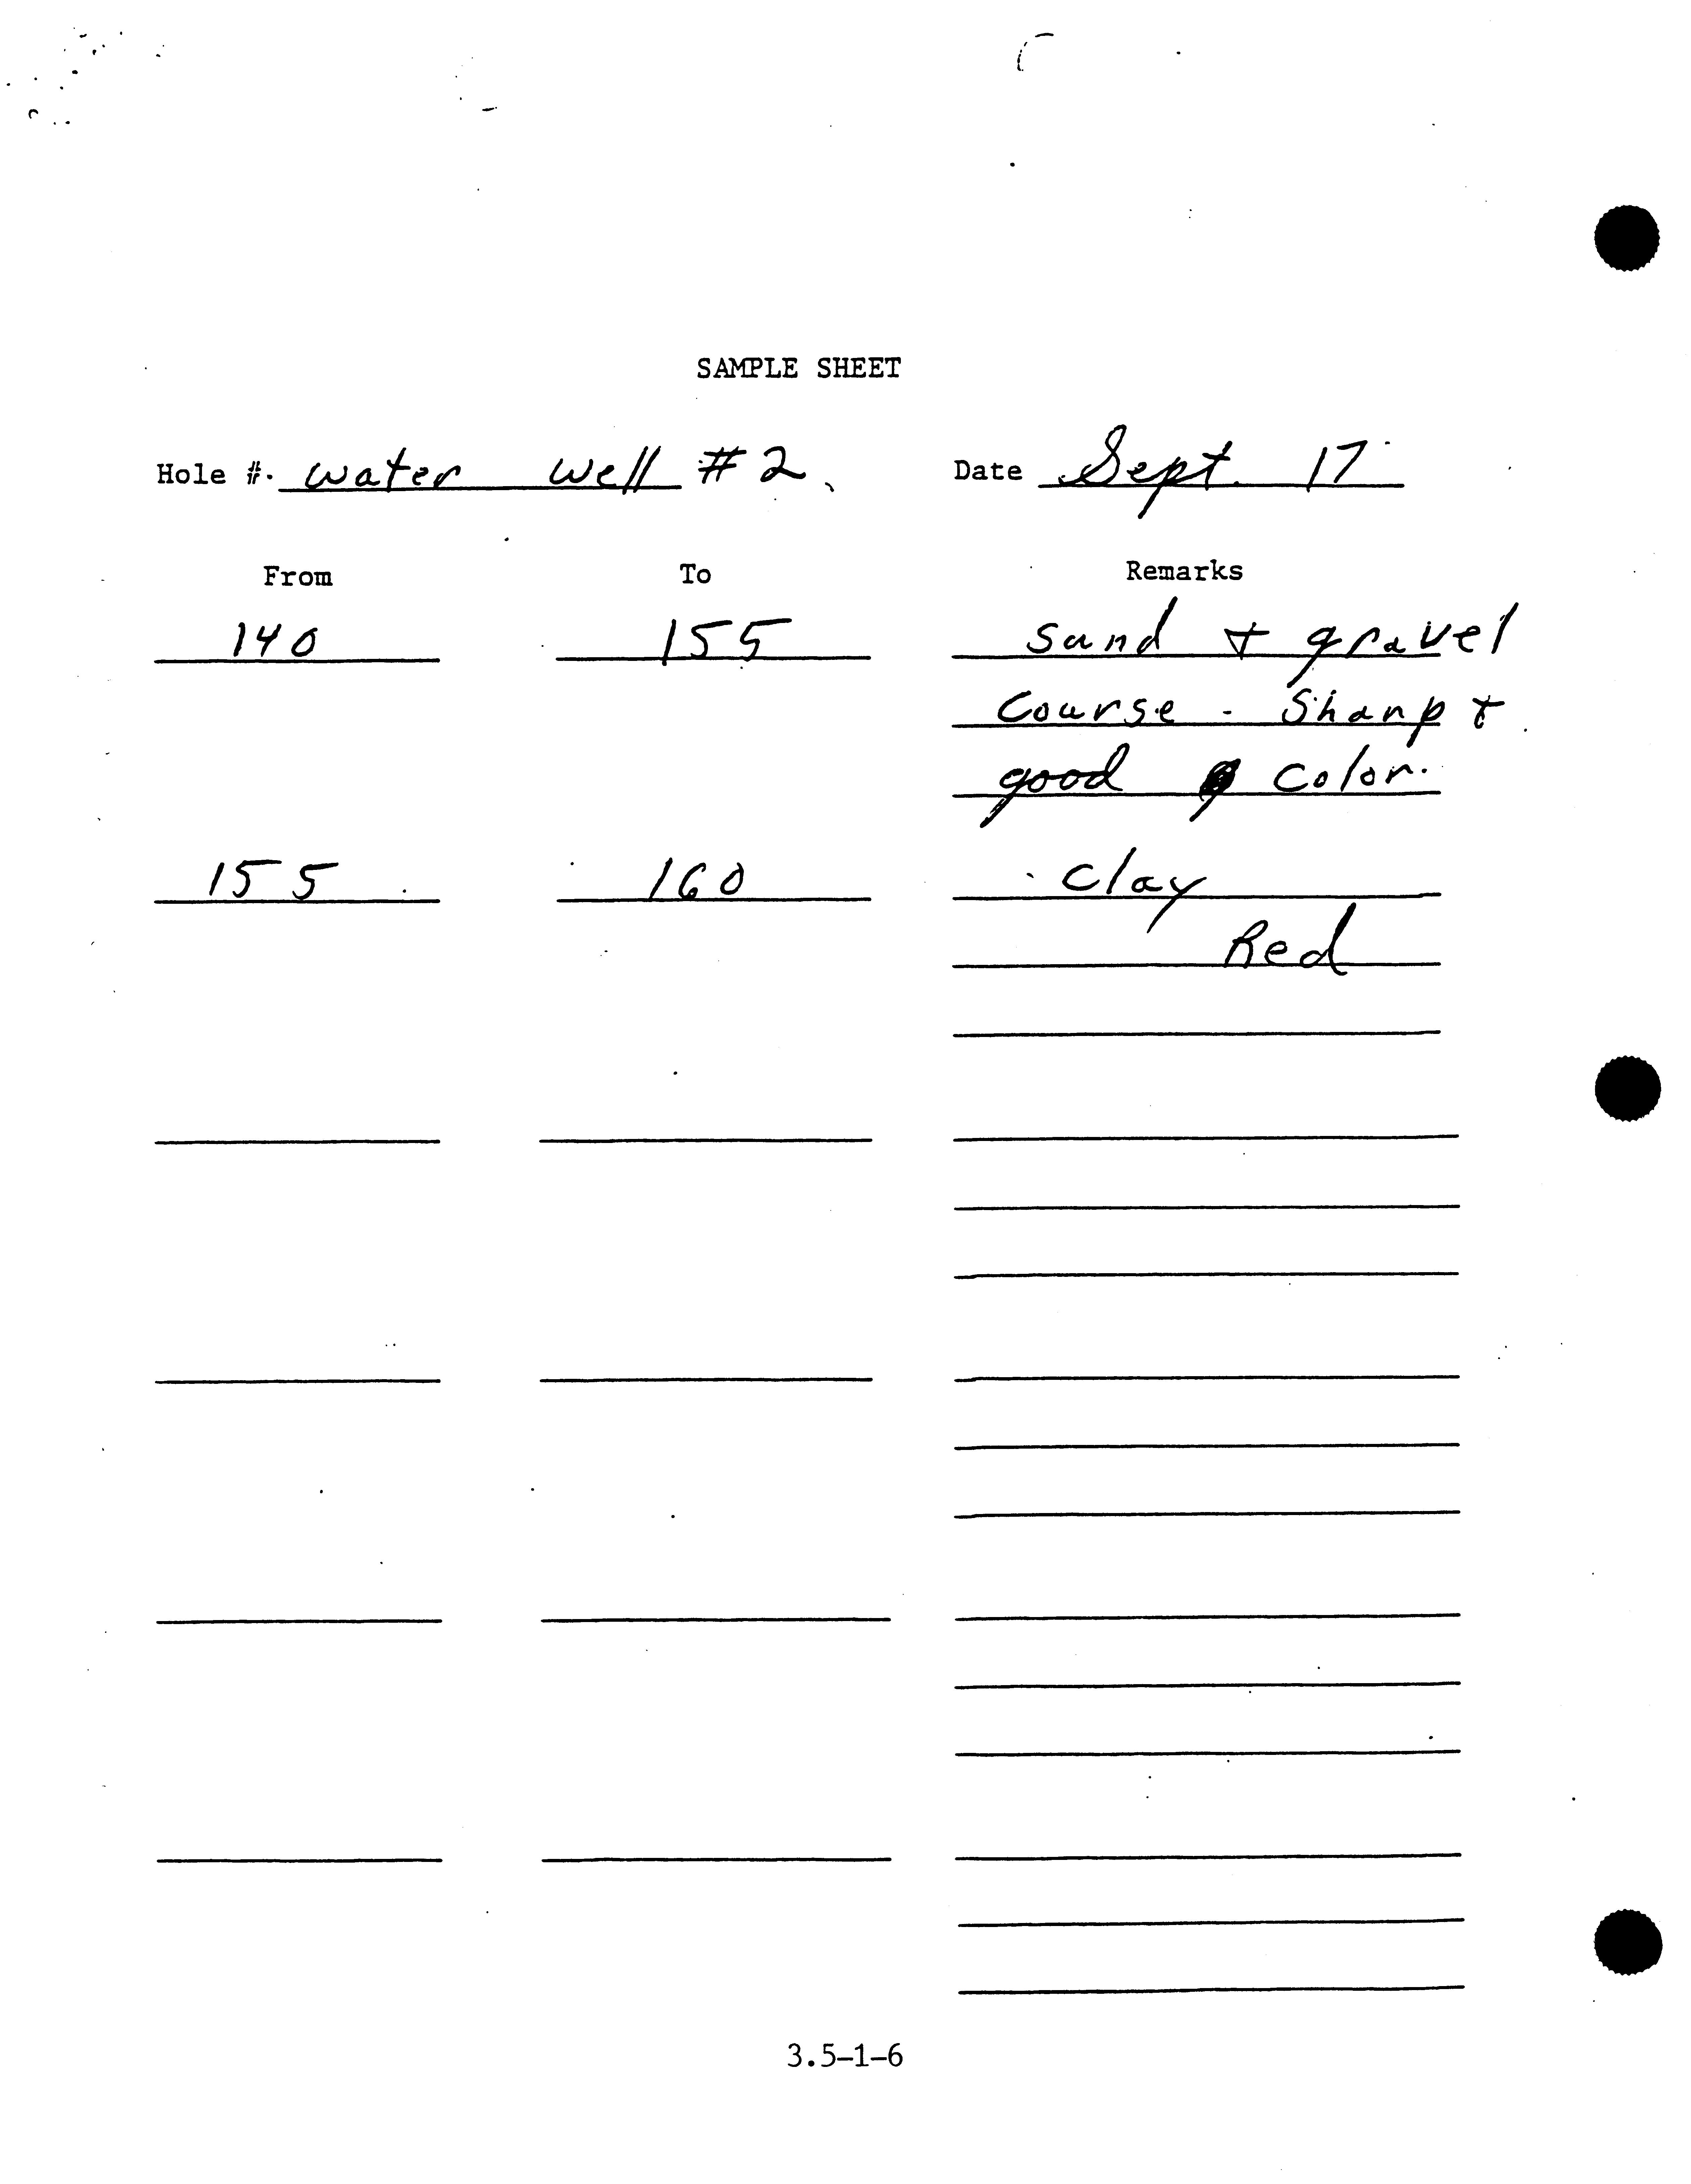 SAMPLE SHEET
Hole #. water well #2 Date Sept. 17
From To Remarks
140 155 sand + gravel
Course - Sharp +
good color.
155 160 clay
Red
3.5-1-6